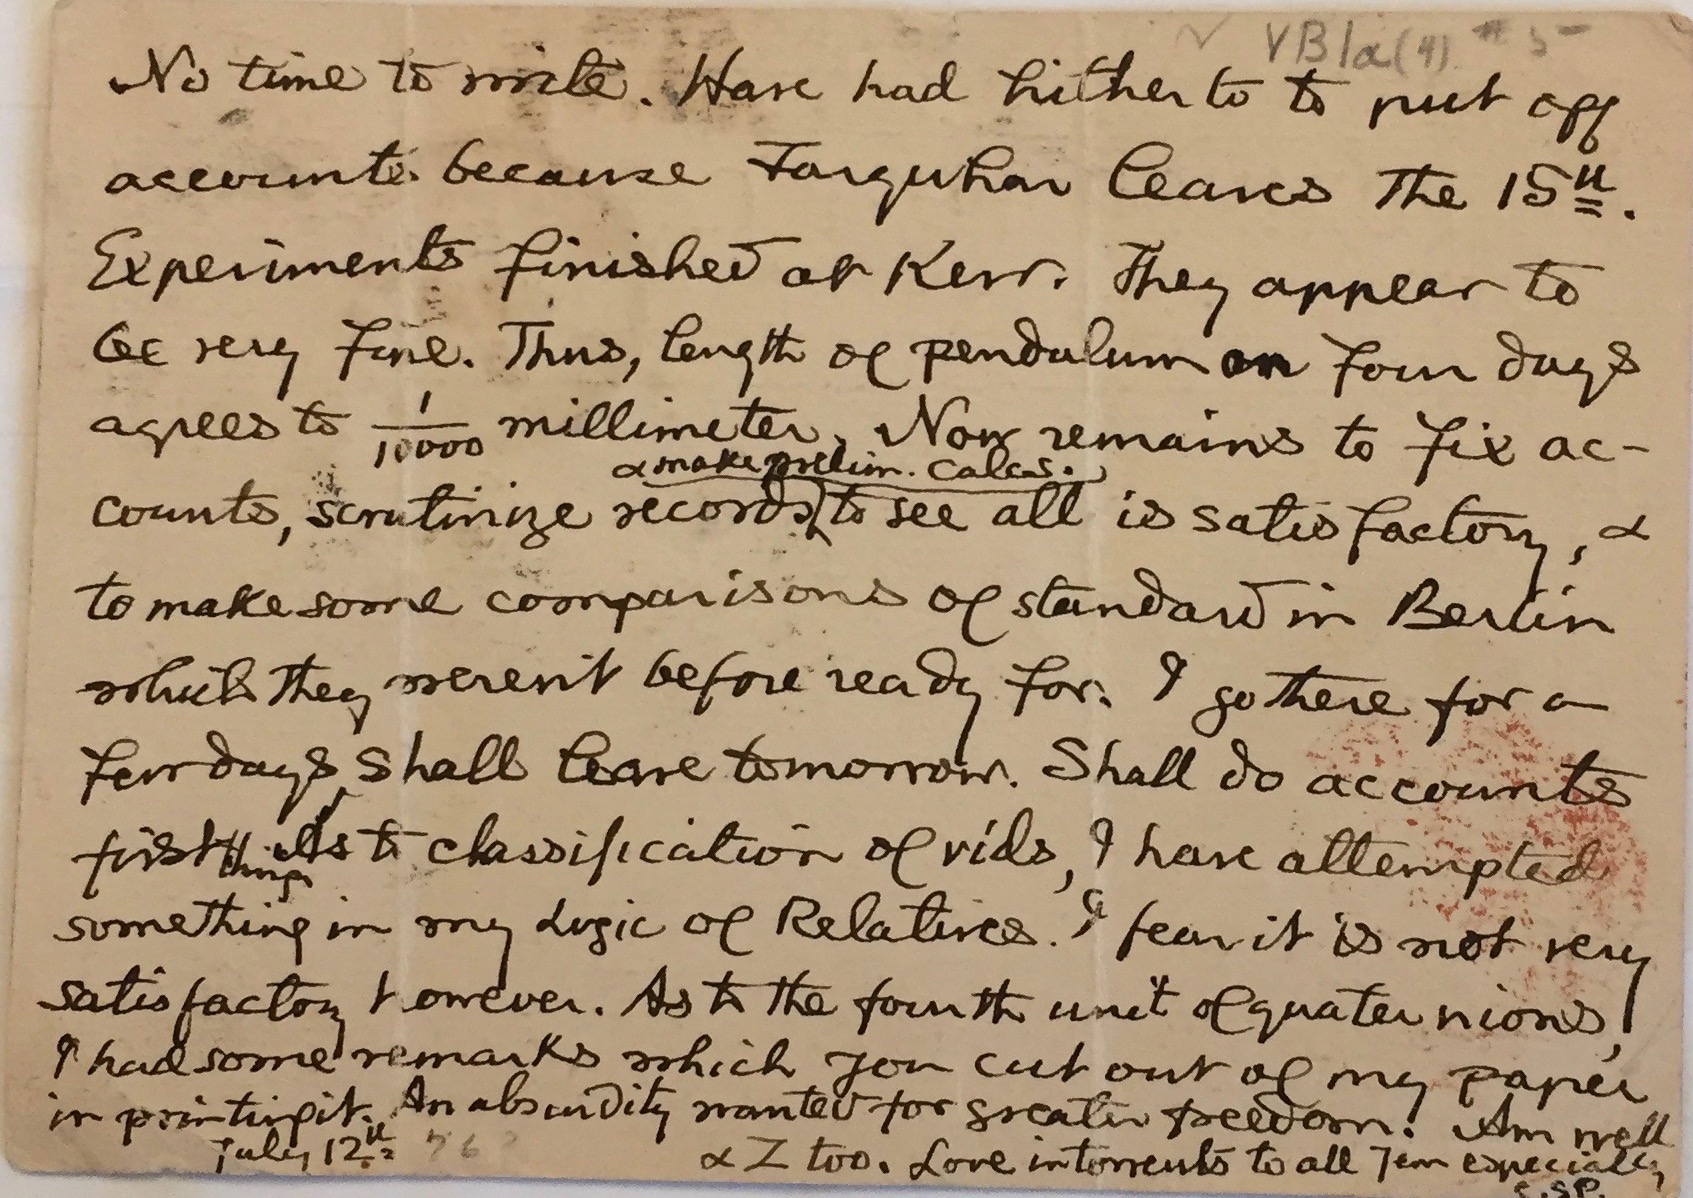 VB1a(4) #5
No time to write. Have had hitherto to put off
accounts because Farquhar leaves the 15th.
Experiments finished at Kew. They appear to
be very fine. Thus, length of pendulum on four days
agrees to 1/10000 millimeter. Now remains to fix ac-
& make prelim. calcs.
counts, scrutinize records, to see all is satisfactory, &
to make some comparisons of standard in Berlin
which they weren't before ready for. I go there for a
few days, shall leave tomorrow. Shall do accounts
first thing. As to classification of vids, I have attempted
something in my Logic of Relatives. I fear it is not very
satisfactory however. As to the fourth unit of quaternions,
I had some remarks which you cut out of my paper
in printing it. An absurdity wanted for greater freedom! Am well
July 12th 76 & Z too. Love in torrents to all Jem especially
C.S.P.